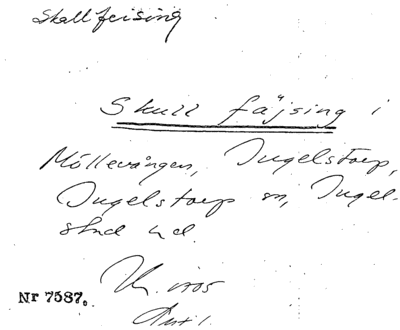 Skallfeising
Skull fäjsing i
Möllevången, Ingelstorp,
Ingelstorp sn, Ingel-
stad hd.
Nr 7587.